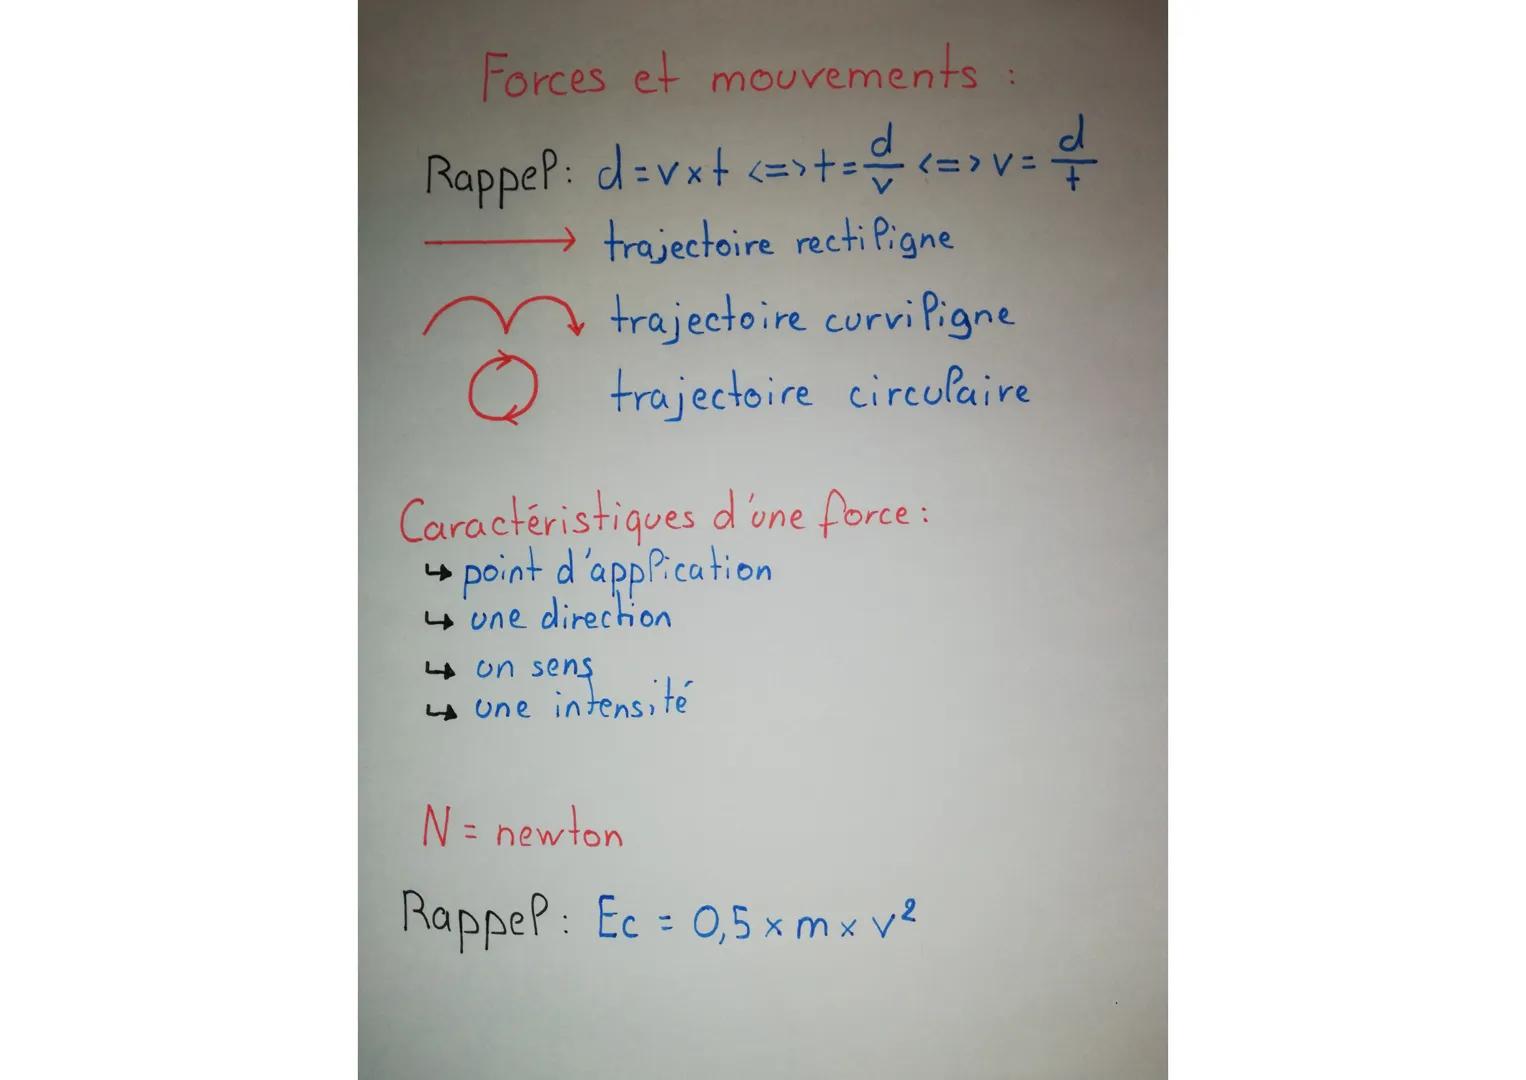 Forces et mouvements :
Rappel : d = v x t <=> t = d/v <=> v = d/t
trajectoire rectiligne
trajectoire curviligne
trajectoire circulaire
Caractéristiques d'une force :
↳ point d'application
↳ une direction
↳ un sens
↳ une intensité
N = newton
Rappel : Ec = 0,5 x m x v²